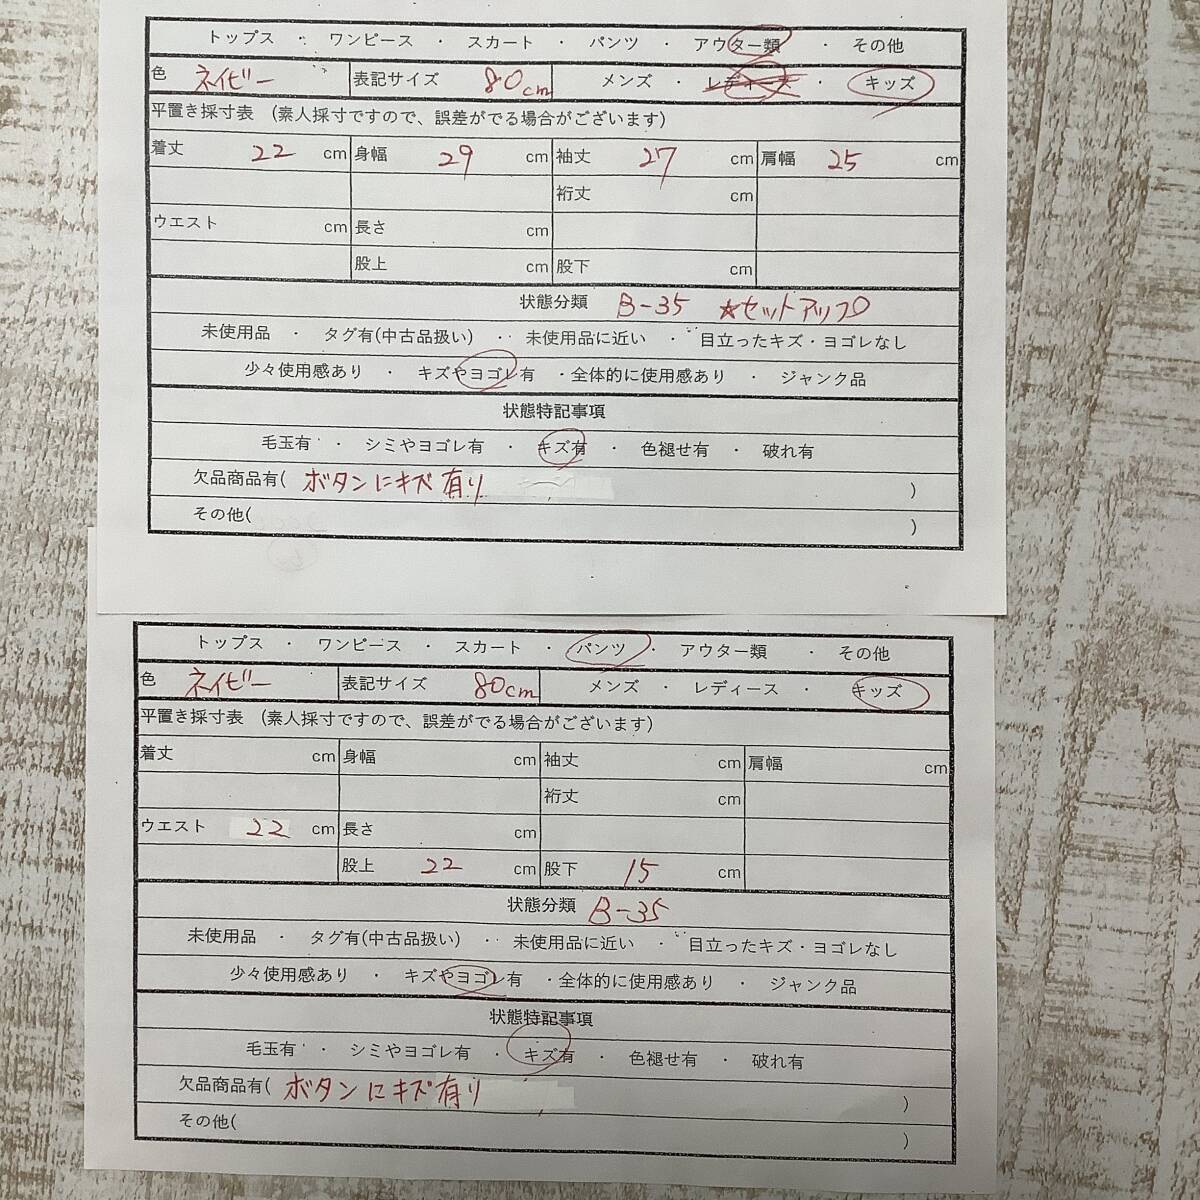 トップス ・ ワンピース ・ スカート ・ パンツ ・ アウター類 ・ その他
色 ネイビー 表記サイズ 80cm メンズ ・ レディース ・ キッズ
平置き採寸表 (素人採寸ですので、誤差がでる場合がございます)
着丈 22 cm 身幅 29 cm 袖丈 27 cm 肩幅 25 cm
裄丈 cm
ウエスト cm 長さ cm
股上 cm 股下 cm
状態分類 B-35 ☆セットアップ
未使用品 ・ タグ有(中古品扱い) ・ 未使用品に近い ・ 目立ったキズ・ヨゴレなし
少々使用感あり ・ キズやヨゴレ有 ・全体的に使用感あり ・ ジャンク品
状態特記事項
毛玉有 ・ シミやヨゴレ有 ・ キズ有 ・ 色褪せ有 ・ 破れ有
欠品商品有( ボタンにキズ有り )
その他( )
トップス ・ ワンピース ・ スカート ・ パンツ ・ アウター類 ・ その他
色 ネイビー 表記サイズ 80cm メンズ ・ レディース ・ キッズ
平置き採寸表 (素人採寸ですので、誤差がでる場合がございます)
着丈 cm 身幅 cm 袖丈 cm 肩幅 cm
裄丈 cm
ウエスト 22 cm 長さ cm
股上 22 cm 股下 15 cm
状態分類 B-35
未使用品 ・ タグ有(中古品扱い) ・ 未使用品に近い ・ 目立ったキズ・ヨゴレなし
少々使用感あり ・ キズやヨゴレ有 ・全体的に使用感あり ・ ジャンク品
状態特記事項
毛玉有 ・ シミやヨゴレ有 ・ キズ有 ・ 色褪せ有 ・ 破れ有
欠品商品有( ボタンにキズ有り )
その他( )